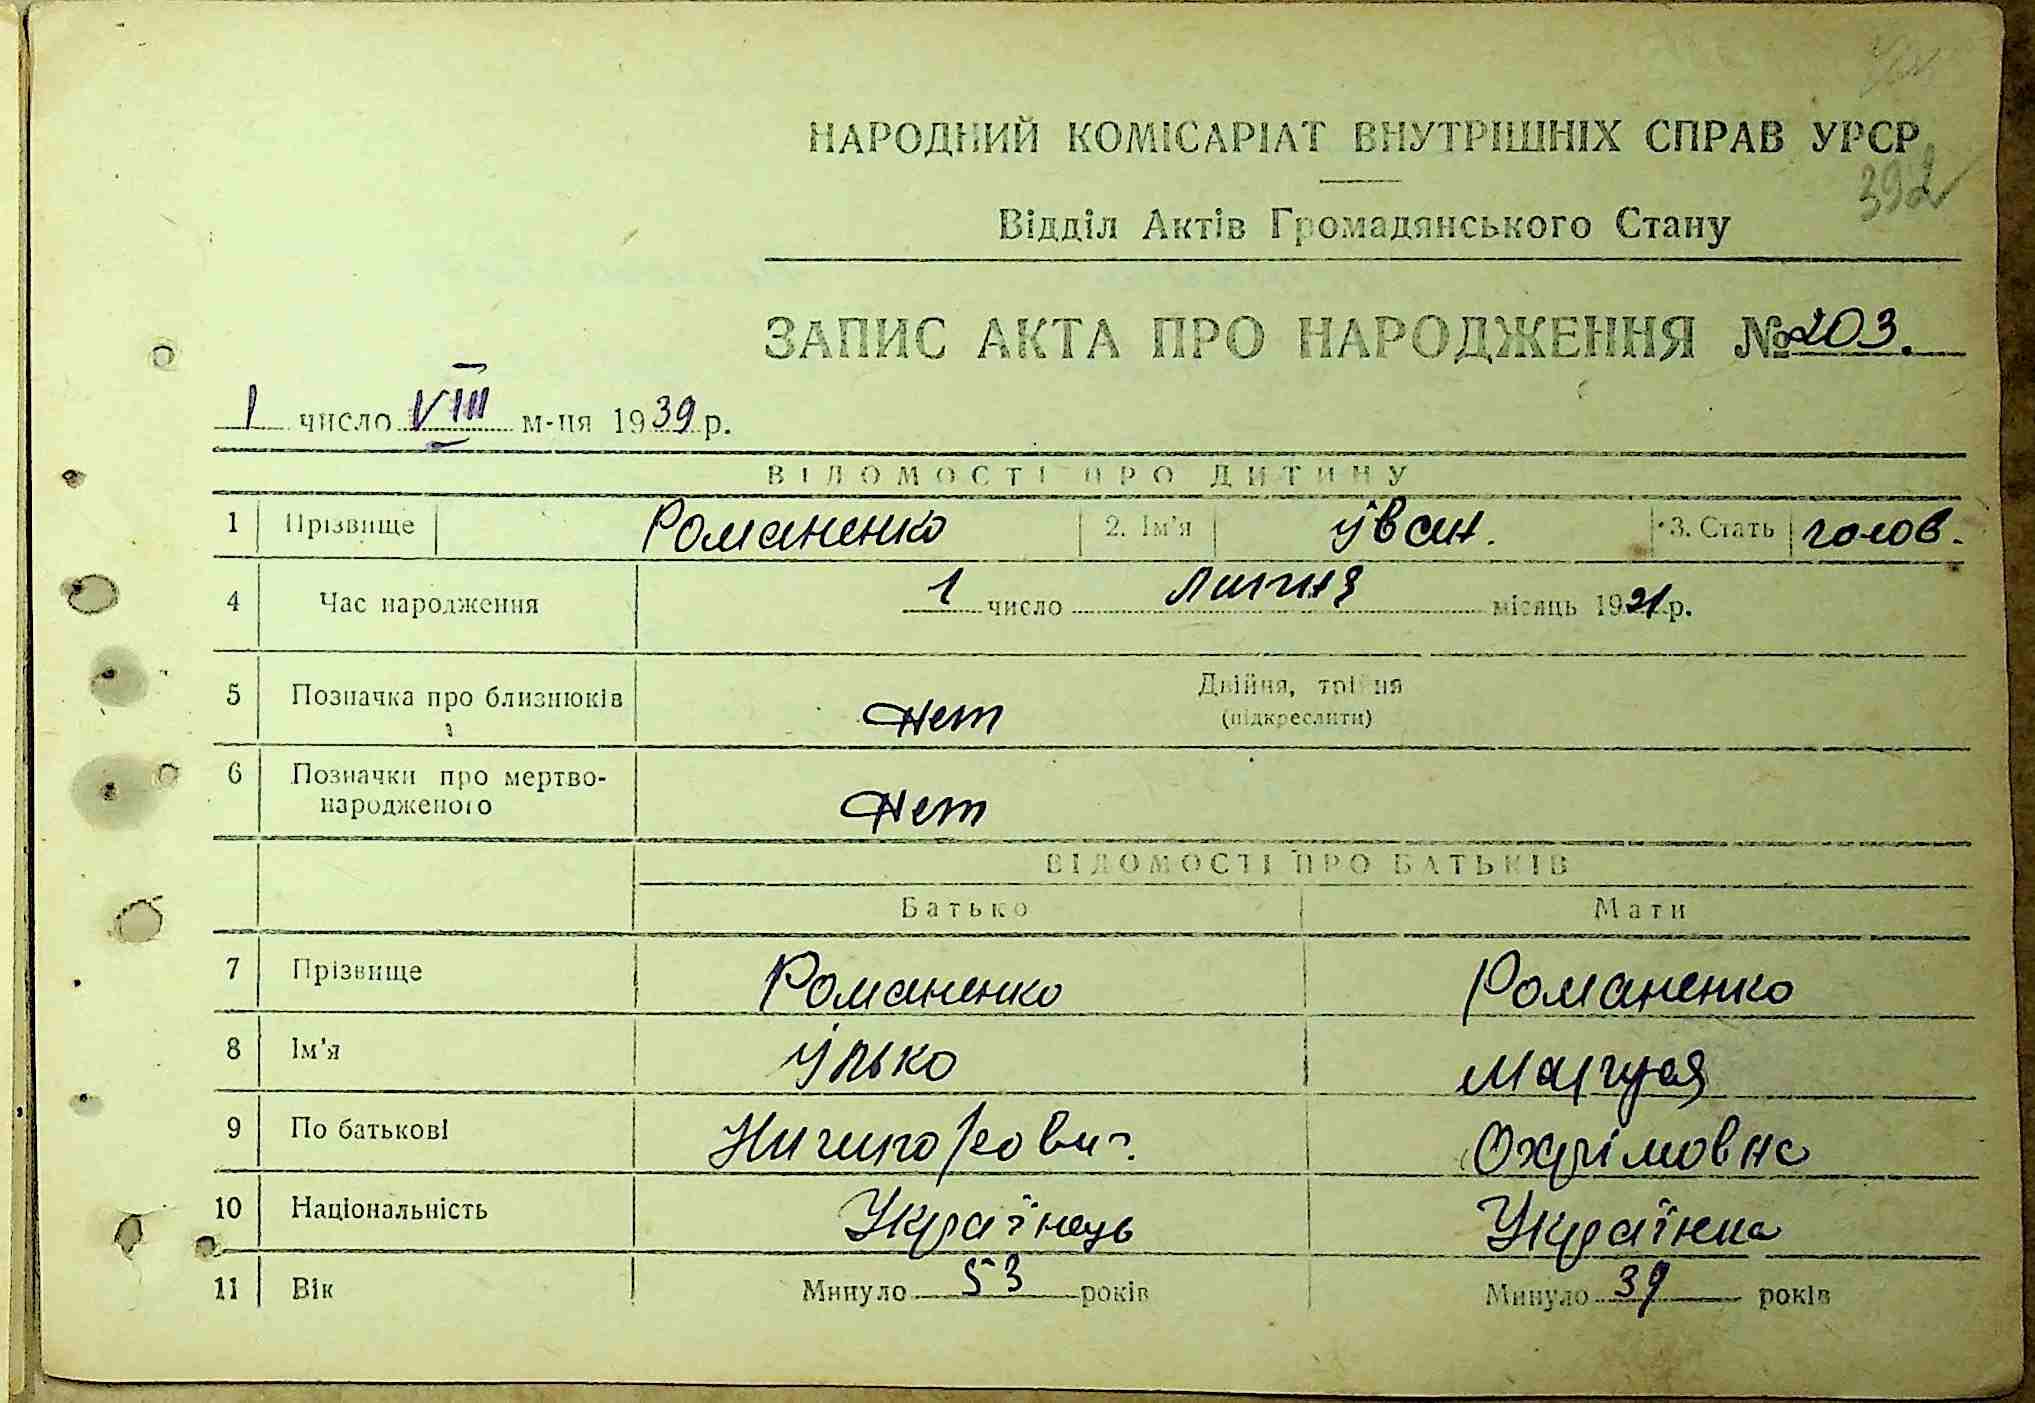 НАРОДНИЙ КОМІСАРІАТ ВНУТРІШНІХ СПРАВ УРСР
392
Відділ Актів Громадянського Стану
ЗАПИС АКТА ПРО НАРОДЖЕННЯ № 203.
1 число VIII м-ця 1939 р.
ВІДОМОСТІ ПРО ДИТИНУ
1 Прізвище Романенко 2. Ім'я Іван. 3. Стать чолов.
4 Час народження 1 число Липня місяць 1921 р.
5 Позначка про близнюків Нет Двійня, трійня
(підкреслити)
6 Позначки про мертво-
народженого Нет
ВІДОМОСТІ ПРО БАТЬКІВ
Батько Мати
7 Прізвище Романенко Романенко
8 Ім'я Ілько
9 По батькові Ничипорович. Охрімовна
10 Національність Українець Українка
11 Вік Минуло 53 років Минуло 39 років